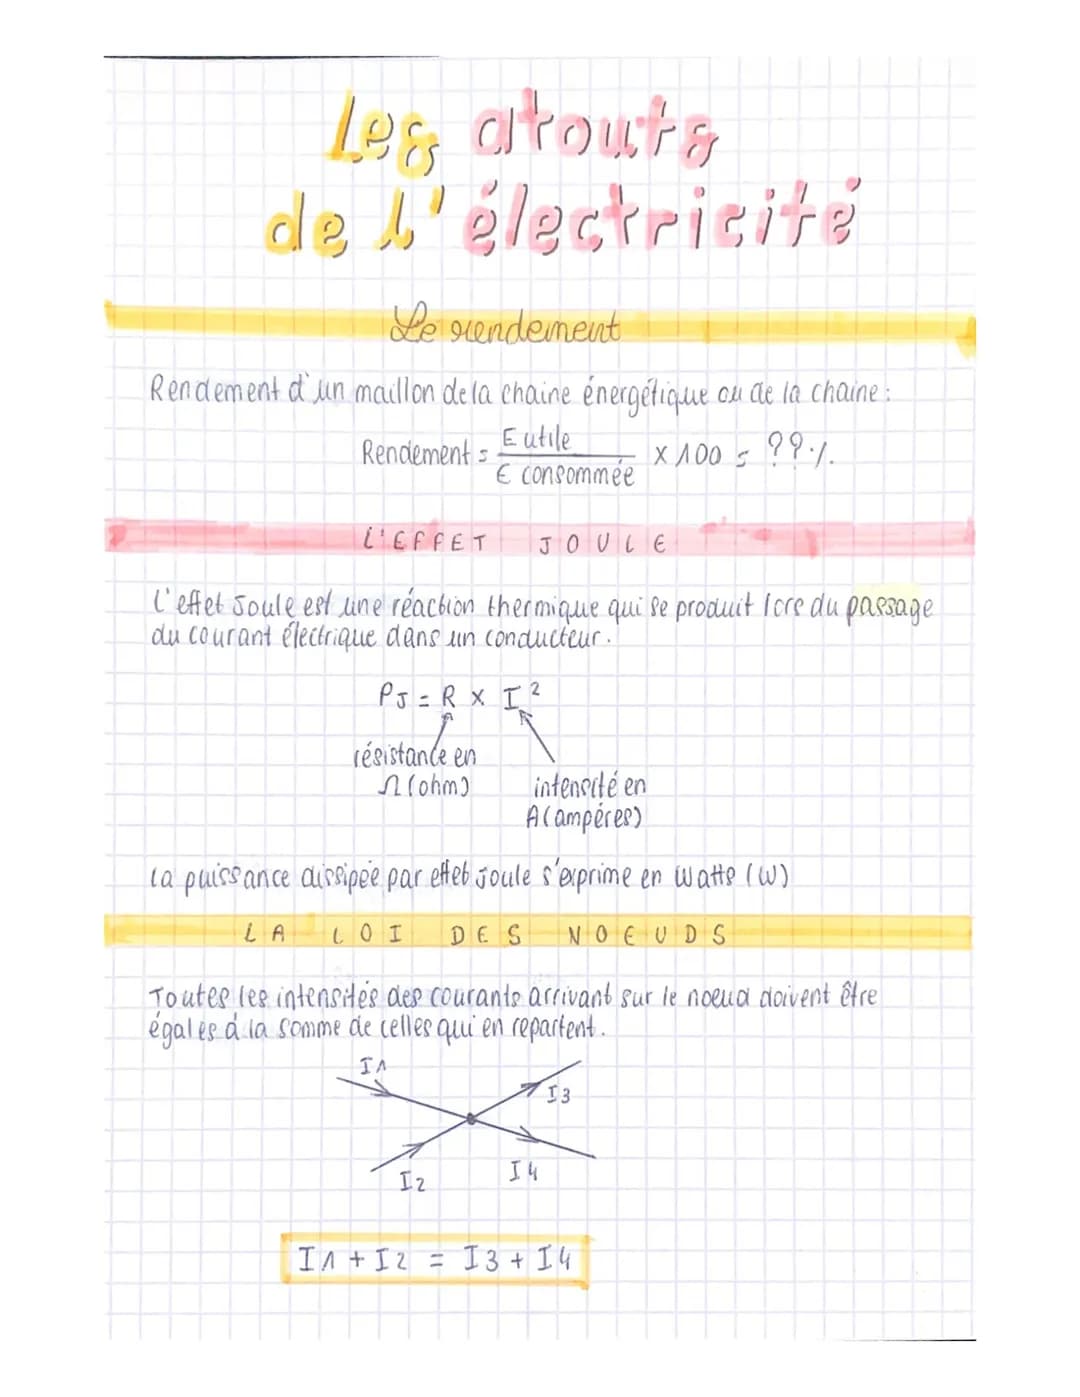 Les atouts
de l'électricité
Le rendement
Rendement d'un maillon de la chaine énergétique ou de la chaine :
Rendement = E utile / E consommée × 100 = ??%.
L'EFFET JOULE
L'effet Joule est une réaction thermique qui se produit lors du passage
du courant électrique dans un conducteur.
PJ = R × I²
résistance en
Ω (ohm)
intensité en
A (ampères)
La puissance dissipée par effet Joule s'exprime en Watts (W)
LA LOI DES NOEUDS
Toutes les intensités des courants arrivant sur le noeud doivent être
égales à la somme de celles qui en repartent.
I1
I3
I2
I4
I1 + I2 = I3 + I4